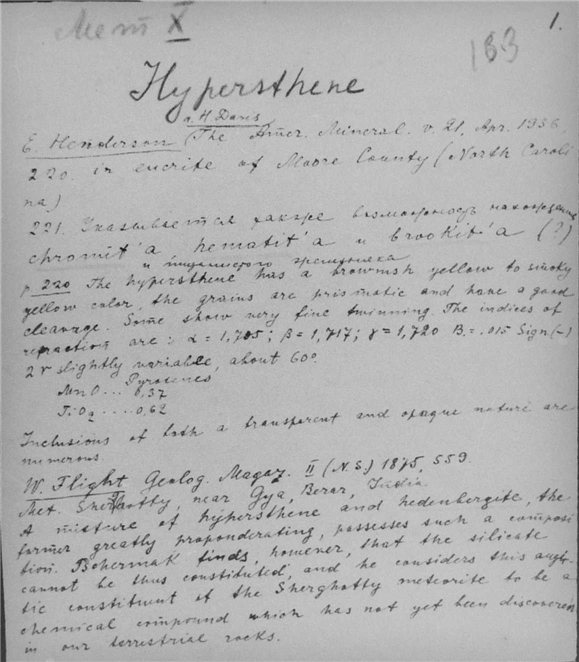 Мет X
1.
183
Hypersthene
a. H. Davis
E. Henderson (The Amer. Mineral. v. 21, Apr. 1936,
220. in eucrite of Moore County (North Caroli
na)
221. Указывается также возможность нахождения
chromit'a hematit'a и brookit'a (?)
и
p. 220 The hypersthene has a brownish yellow to smoky
yellow color, the grains are prismatic and have a good
cleavage. Some show very fine twinning. The indices of
refraction are: α = 1,705; β = 1,717; γ = 1,720 B. = .015 Sign (-)
2V slightly variable, about 60°.
Pyroxenes
MnO ... 0,37
TiO2 .... 0,62
Inclusions of both a transparent and opaque nature are
numerous.
W. Flight Geolog. Magaz. II (N.S.) 1875, 559.
Met. Sherghotty, near Gya, Berar, India
A mixture of hypersthene and hedenbergite, the
former greatly proponderating, possesses such a composi
tion. Tschermak finds, however, that the silicate
cannot be thus constituted, and he considers this augi-
tic constituent of the Sherghotty meteorite to be a
chemical compound which has not yet been discovered
in our terrestrial rocks.